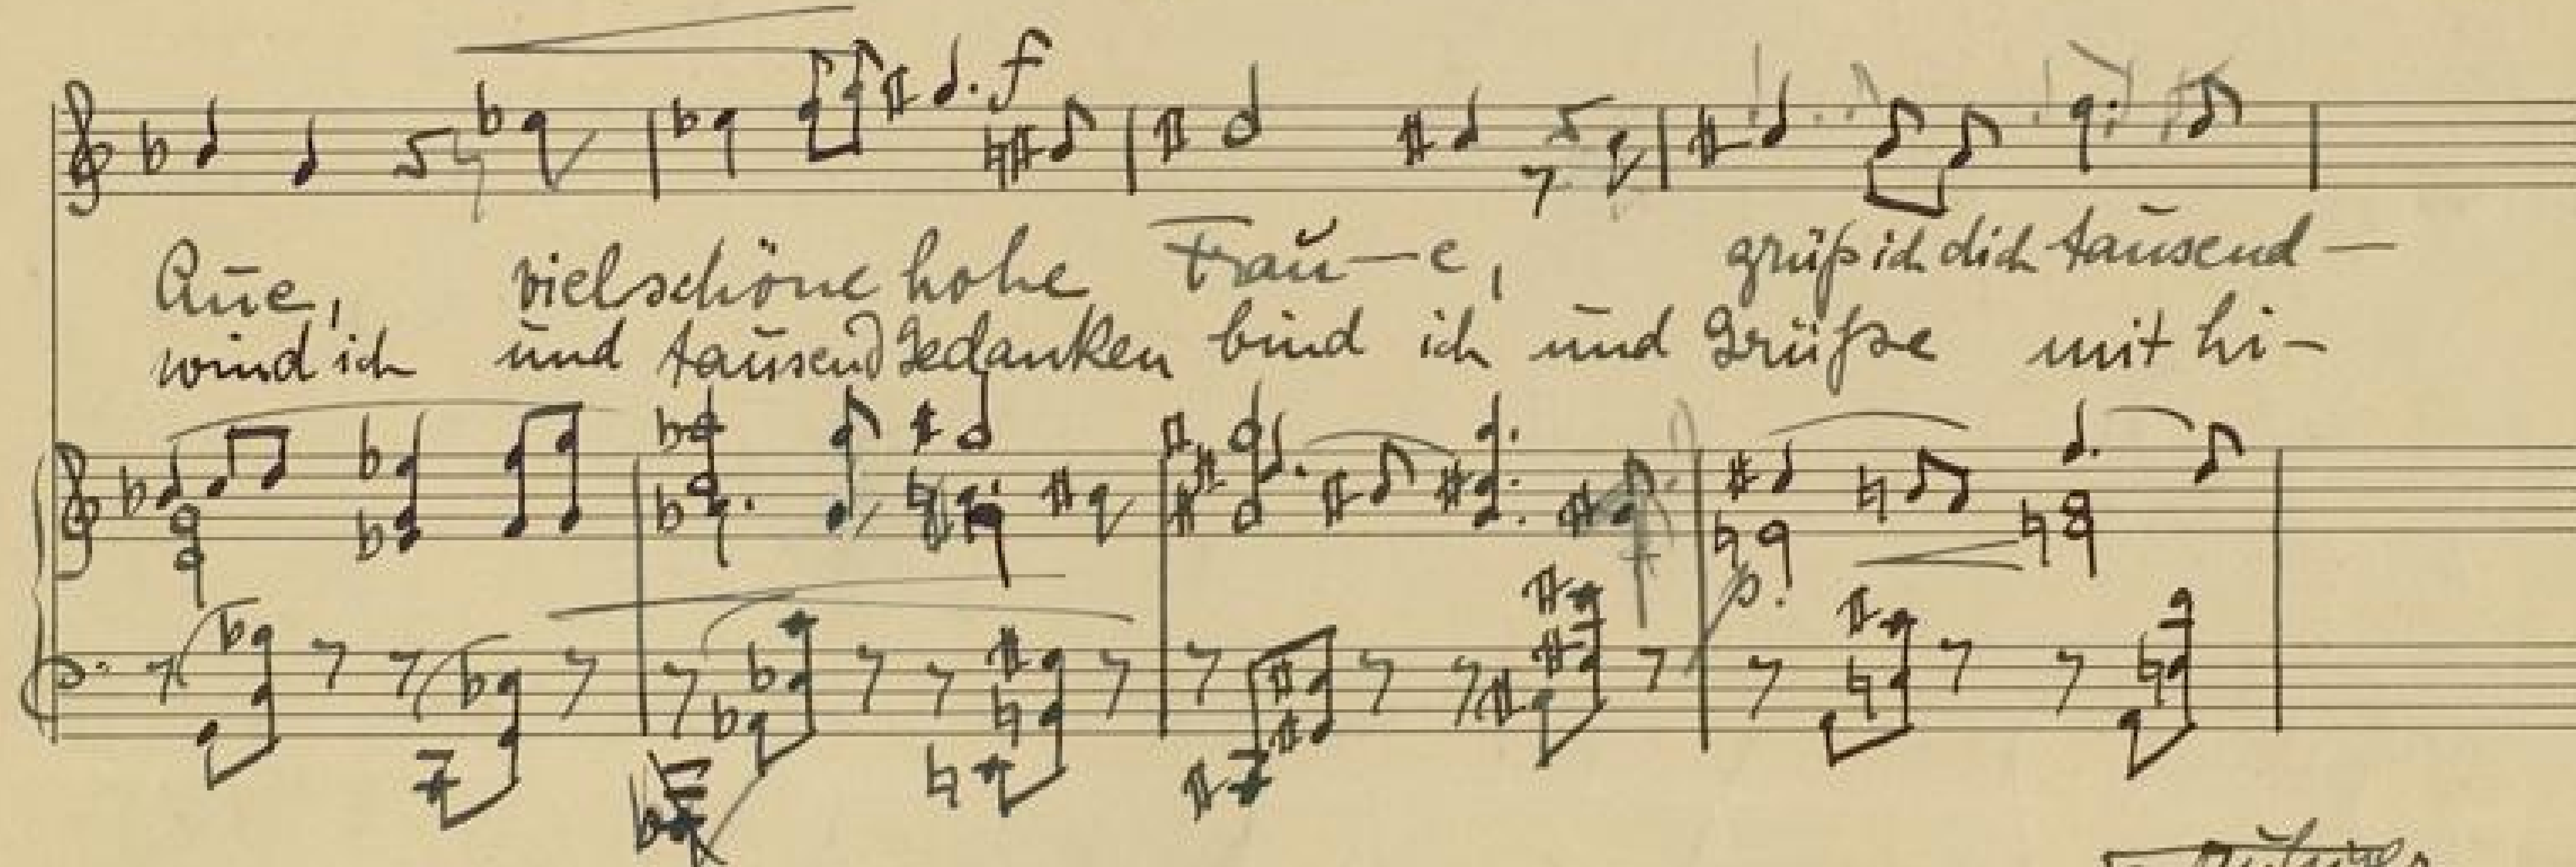 f
Aue, vielschöne hohe Frau-e, grüß ich dich tausend-
wind' ich und tausend Gedanken bind ich und Grüße mit hi-
p.